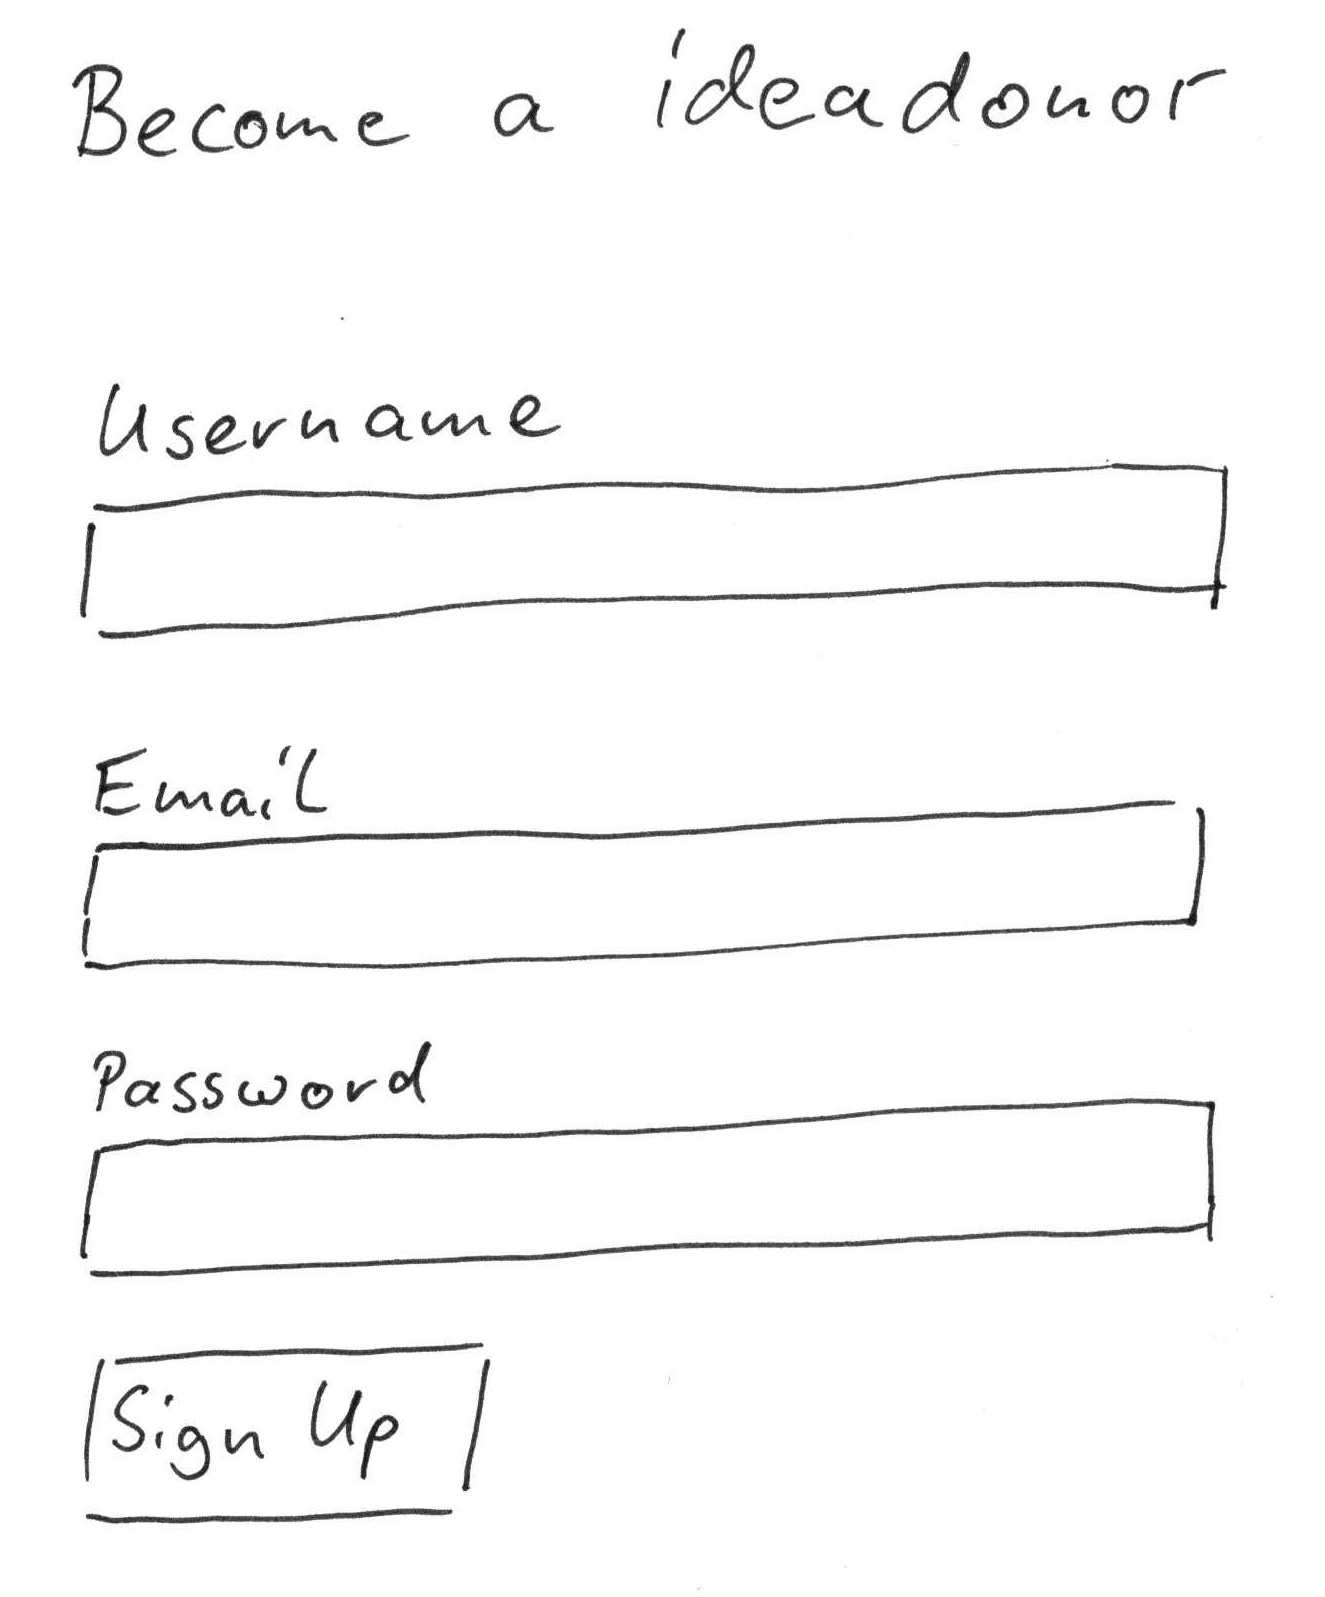 Become a ideadonor
Username
Email
Password
Sign Up